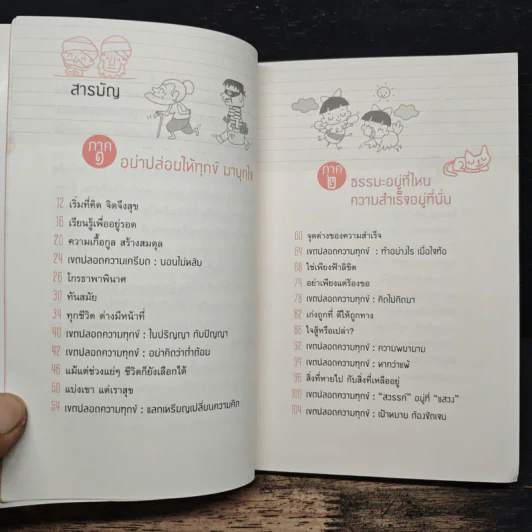 สารบัญ
ภาค
๑
อย่าปล่อยให้ทุกข์ มาบุกใจ
12 เริ่มที่คิด จิตจึงสุข
16 เรียนรู้เพื่ออยู่รอด
20 ความเกื้อกูล สร้างสมดุล
24 เขตปลอดความเครียด : นอนไม่หลับ
26 โกรธาพาพินาศ
30 ทันสมัย
34 ทุกชีวิต ต่างมีหน้าที่
40 เขตปลอดความทุกข์ : ใบปริญญา กับปัญญา
42 เขตปลอดความทุกข์ : อย่าคิดว่าต่ำต้อย
46 แม้แต่ช่วงแย่ๆ ชีวิตก็ยังเลือกได้
50 แบ่งเขา แต่เราสุข
54 เขตปลอดความทุกข์ : แลกเหรียญเปลี่ยนความคิด
ภาค
๒
ธรรมะอยู่ที่ไหน
ความสำเร็จอยู่ที่นั่น
60 จุดต่างของความสำเร็จ
64 เขตปลอดความทุกข์ : ทำอย่างไร เมื่อใจท้อ
68 ใช่เพียงฟ้าลิขิต
74 อย่าเพียงแต่ร้องขอ
78 เขตปลอดความทุกข์ : คิดไปคิดมา
82 เก่งถูกที่ ดีให้ถูกทาง
86 ใจสู้หรือเปล่า?
92 เขตปลอดความทุกข์ : ความพยายาม
94 เขตปลอดความทุกข์ : หากว่าแพ้
96 สิ่งที่หายไป กับสิ่งที่เหลืออยู่
100 เขตปลอดความทุกข์ : "สวรรค์" อยู่ที่ "แสวง"
104 เขตปลอดความทุกข์ : เป้าหมาย ต้องชัดเจน